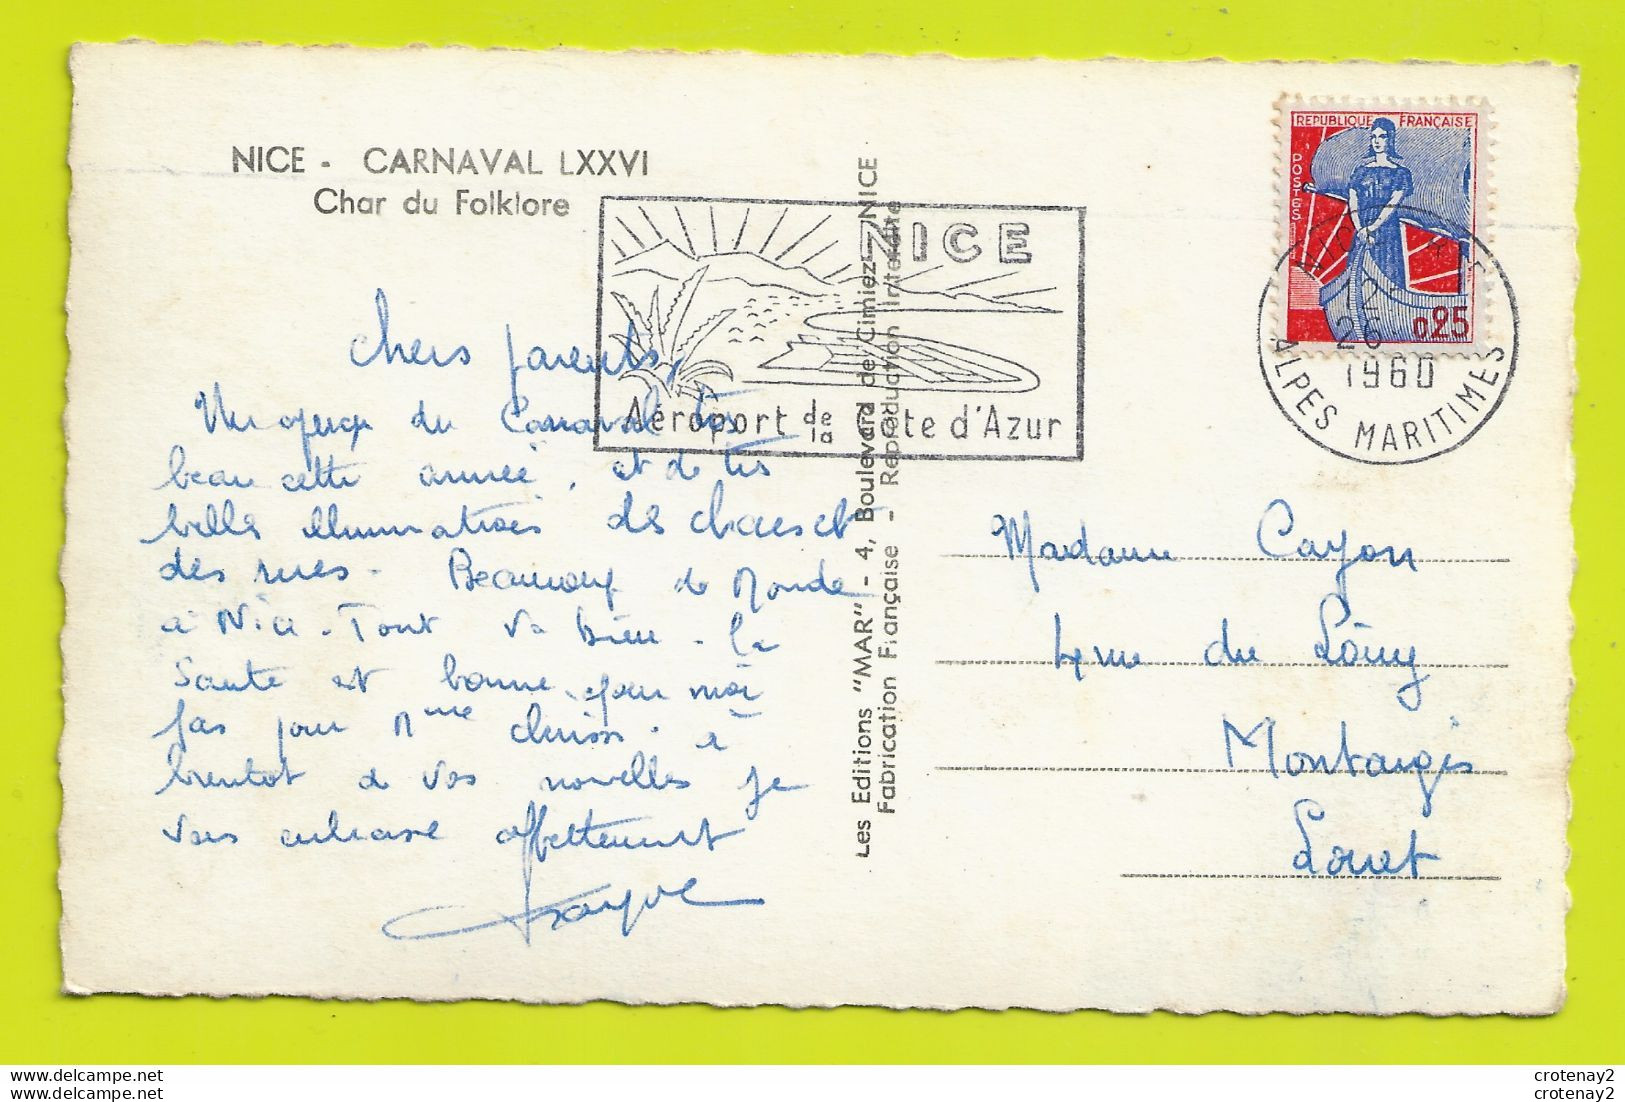 NICE - CARNAVAL LXXVI
Char du Folklore
NICE
Aéroport de la Côte d'Azur
REPUBLIQUE FRANÇAISE
POSTES
0,25
26
1960
ALPES MARITIMES
Chers parents,
Un aperçu du Carnaval très
beau cette année, et de très
belles illuminations des chars et
des rues - Beaucoup de Monde
à Nice - Tout va bien - la
Santé est bonne pour moi
pas pour Mme
bientôt de vos nouvelles je
vous embrasse affectueusement
Les Editions "MAR" - 4, Boulevard de Cimiez - NICE
Fabrication Française - Reproduction interdite
Madame Cayon
rue du Loing
Montargis
Loiret
crotenay2
delcampe.net
crotenay2
delcampe.net